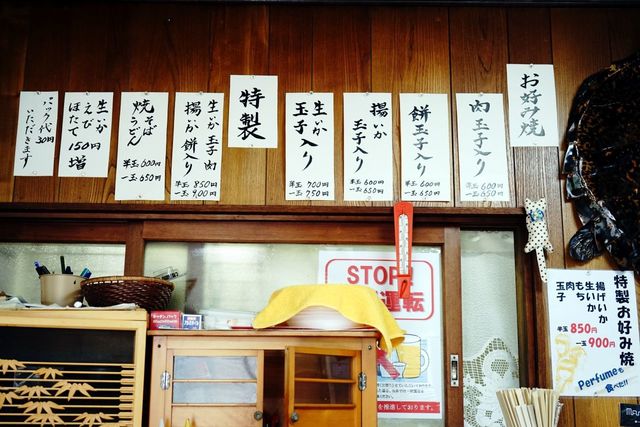 お好み焼
肉玉子入り
半玉600
一玉650
餅玉子入り
半玉600
一玉650
揚いか
玉子入り
半玉600
一玉650
生いか
玉子入り
半玉700
一玉750
特製
生いか玉子肉
揚いか餅入り
半玉850円
一玉900
焼そば
うどん
半玉600円
一玉650
生いか
えび
ほたて
150円増
パック代30円
いただきます
STOP!
運転
を推進しております。
特製お好み焼
揚げいか
生いか
もち
肉
玉子
半玉850円
一玉900円
Perfumeも
食べた!!